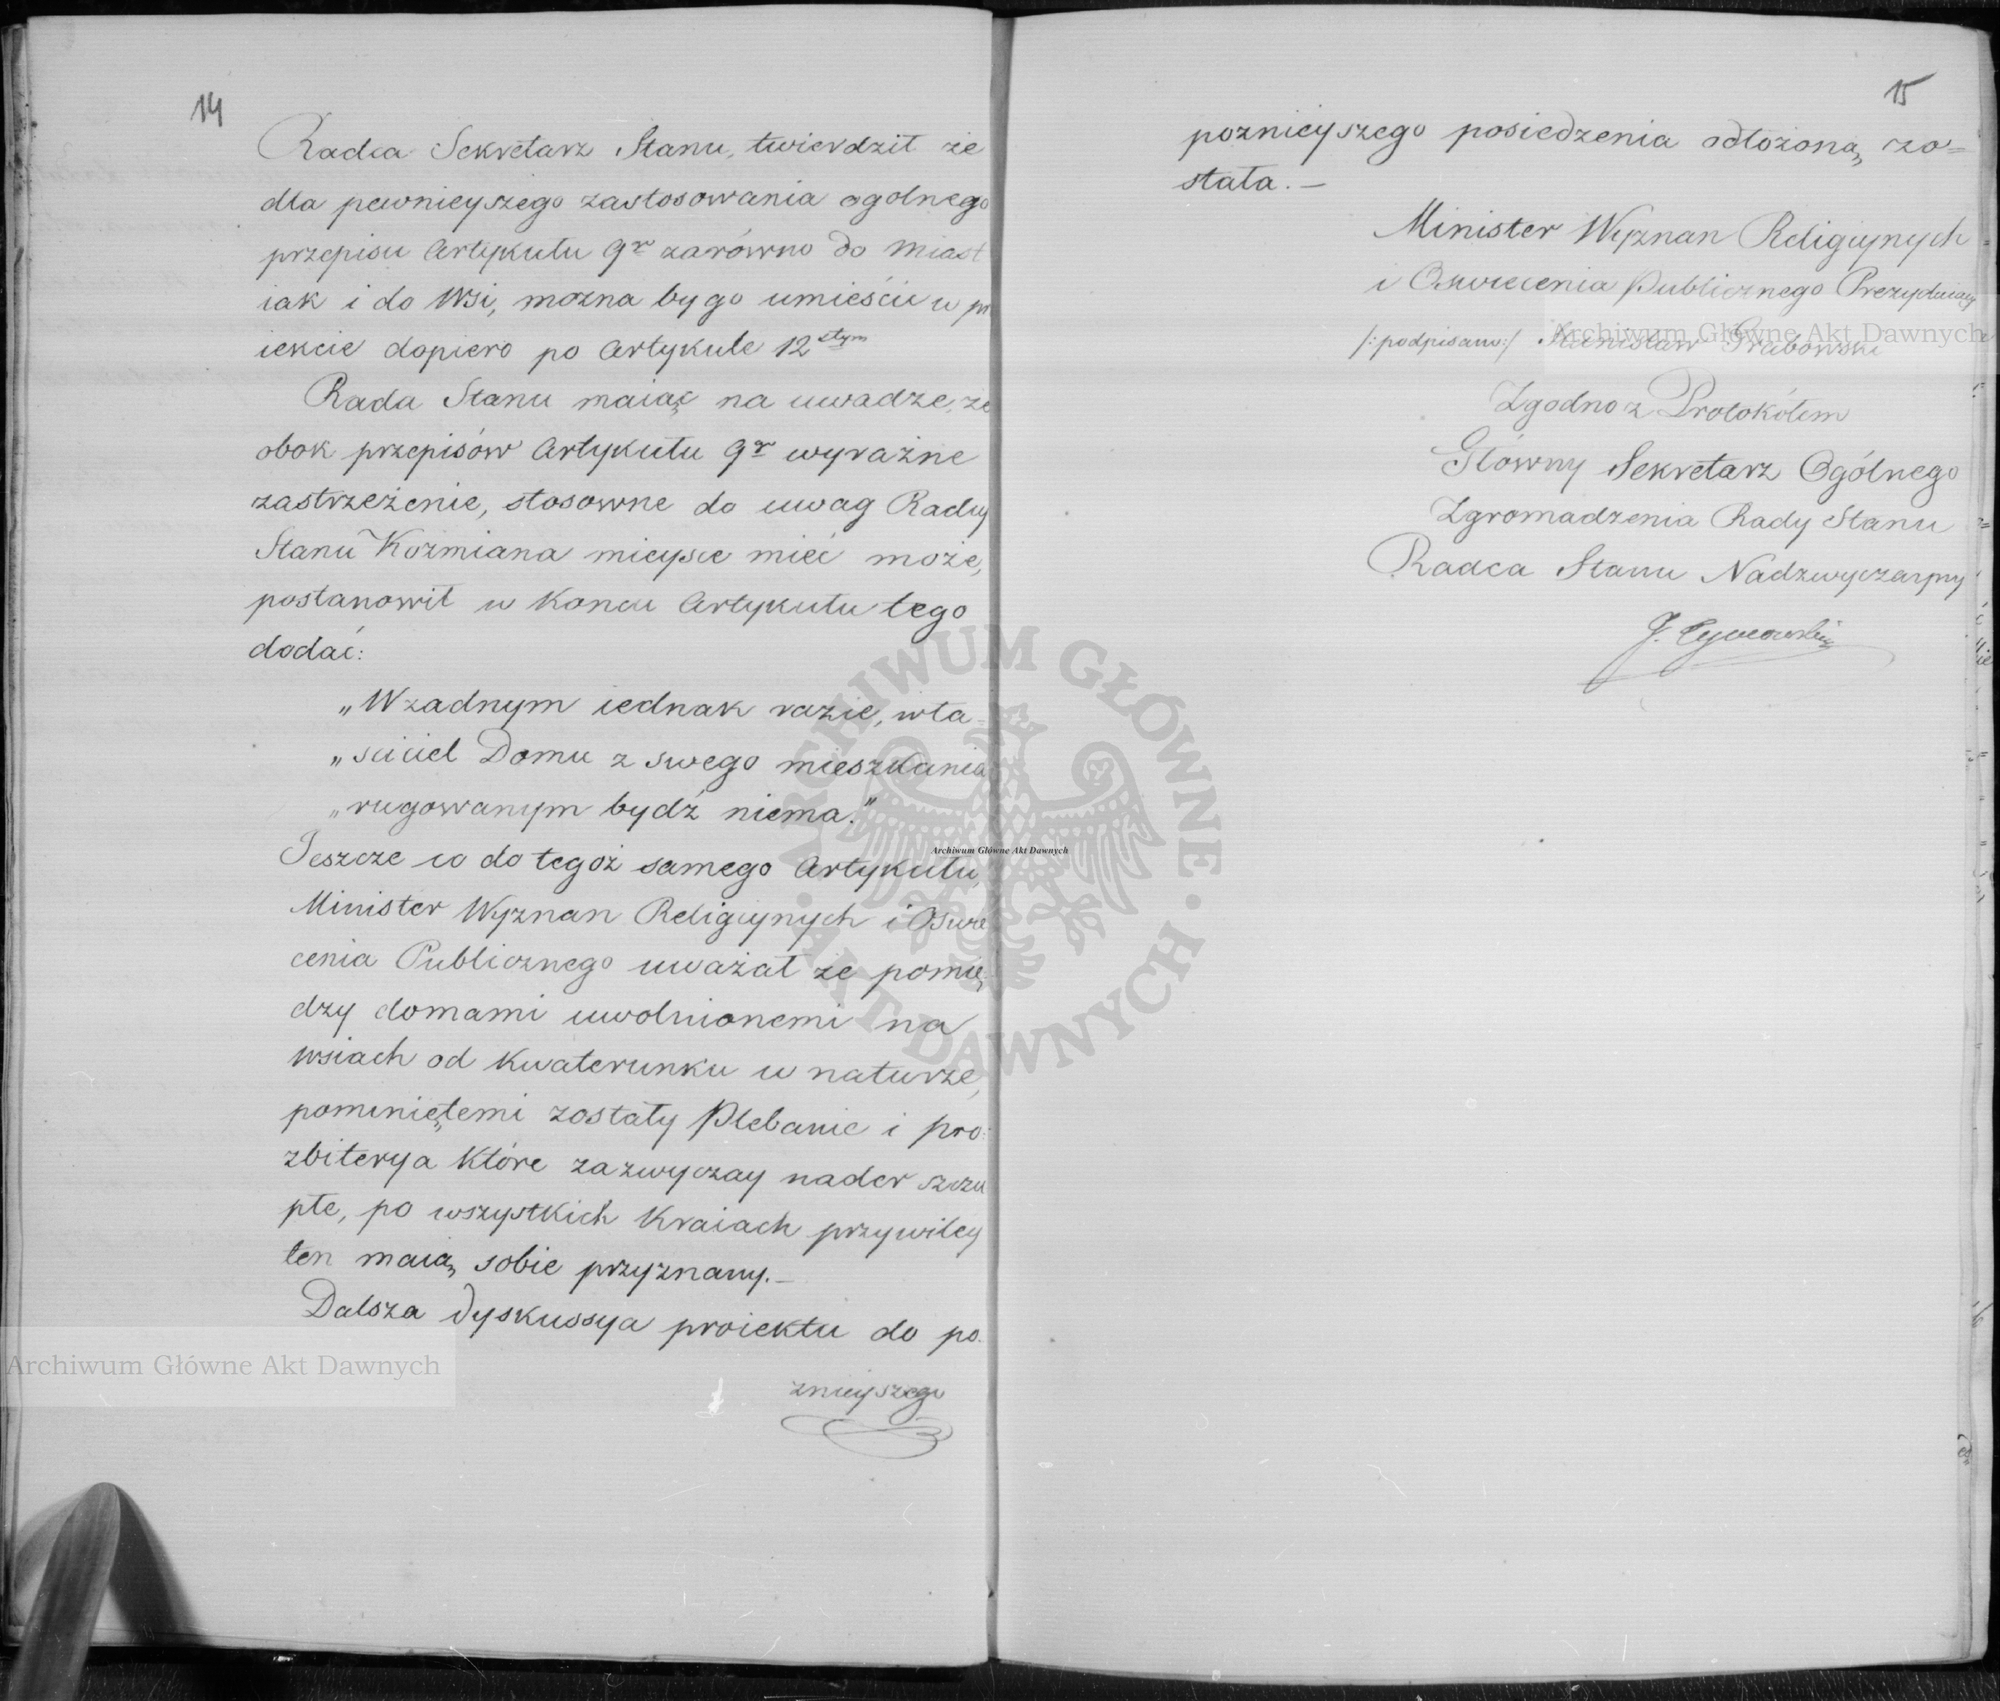 14
Radca Sekretarz Stanu, twierdził że
dla pewnieyszego zastosowania ogolnego
przepisu Artykułu 9r zarówno do Miast
iak i do Wsi, można by go umieścić w pro
iekcie dopiero po Artykule 12stym
Rada Stanu maiąc na uwadze, że
obok przepisów Artykułu 9r wyraźne
zastrzeżenie, stosowne do uwag Radcy
Stanu Kozmiana mieysce mieć może,
postanowił w Koncu Artykułu tego
dodać:
„Wzadnym iednak razie, wła-
„sciciel Domu z swego mieszkania
„rugowanym bydź niema."
Jeszcze co do tegoż samego Artykułu,
Minister Wyznan Religiynych i Oswie
cenia Publicznego uważał że pomię-
dzy domami uwolnionemi na
wsiach od Kwaterunku w naturze,
pominiętemi zostały Plebanie i pro:
zbiterya które zazwyczay nader szczu
płe, po wszystkich Kraiach przywiley
ten maią sobie przyznany.—
Dalsza dyskussya proiektu do po-
znieyszego
15
poznieyszego posiedzenia odłożoną zo=
stała.—
Minister Wyznan Religiynych
i Oswiecenia Publicznego Prezyduiący
/:podpisano:/ Stanisław Grabowski
Zgodno z Protokółem
Główny Sekretarz Ogólnego
Zgromadzenia Rady Stanu
Radca Stanu Nadzwyczayny
J. Tymowski
Archiwum Główne Akt Dawnych
ARCHIWUM GŁÓWNE · AKT DAWNYCH ·
Archiwum Główne Akt Dawnych
Archiwum Główne Akt Dawnych